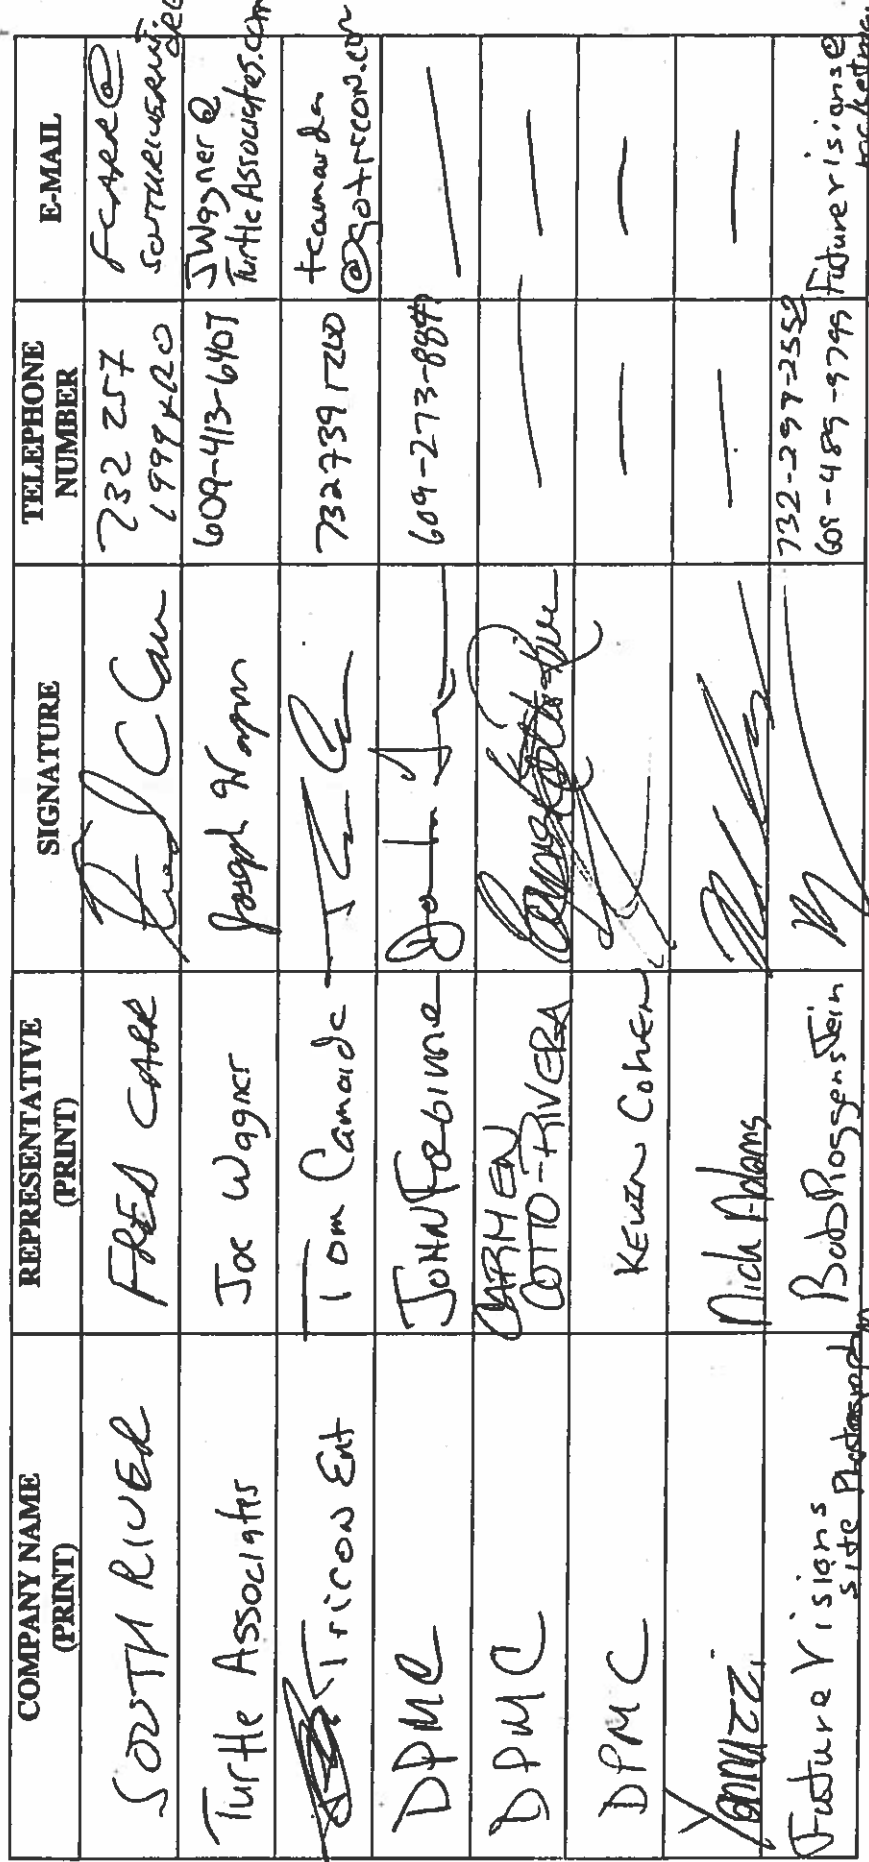 COMPANY NAME (PRINT) REPRESENTATIVE (PRINT) SIGNATURE TELEPHONE NUMBER E-MAIL
SOUTH RIVER FRED CARR 732 257 1999 x20 FCARR@
Turtle Associates Joe Wagner Joseph Wagner 609-413-6407 JWagner@ TurtleAssociates.com
Tricon Ent Tom Camarda 732 739 1200 tcamarda @gotricon.com
DPMC JOHN 609-273-
DPMC CARMEN COTTO-RIVERA — —
DPMC KEVIN Cohen — —
Yannuzzi Nick Adams — —
Future Visions Site Photography Bob 732-297-2552 609-489-9795 futurevisions@